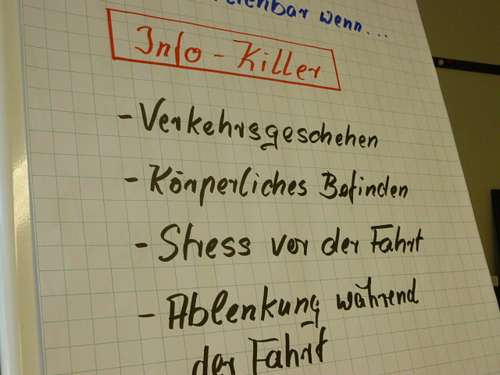 wenn...
Info - Killer
- Verkehrsgeschehen
- Körperliches Befinden
- Stress vor der Fahrt
- Ablenkung während
der Fahrt